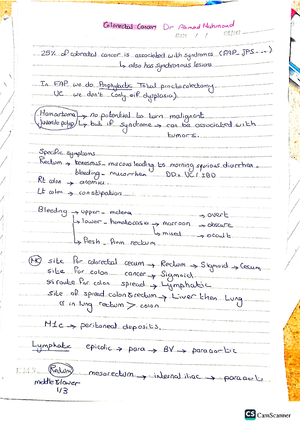 Colorectal Cancer Dr Ahmed Mahmoud
25% of colorectal cancer is associated with syndromes (FAP, JPS ---)
↳ also has synchronous lesions
In FAP we do Prophylactic Total proctocolectomy
UC we don't (only if dysplasia)
Hamartoma → no potential to turn malignant
Juvenile polyp ↳ but if syndrome → can be associated with
tumors.
Specific symptoms
Rectum → tenesmus - mucous leading to morning spurious diarrhea -
bleeding - mucorrhea DD: UC, IBD
Rt colon → anemia
Lt colon → constipation
Bleeding → upper - melena → overt
↳ lower - hematochezia → maroon → obscure
↳ mixed → occult
↳ fresh - from rectum
MC site for colorectal cancer → Rectum → Sigmoid → Cecum
site for colon cancer → Sigmoid
route for colon spread → Lymphatic
site of spread colon & rectum → Liver then Lung
& in lung rectum > colon
M1c → peritoneal deposits.
Lymphatic epicolic → para → BV → paraaortic
Rectum mesorectum → internal iliac → paraaortic
middle & lower
1/3
CS CamScanner